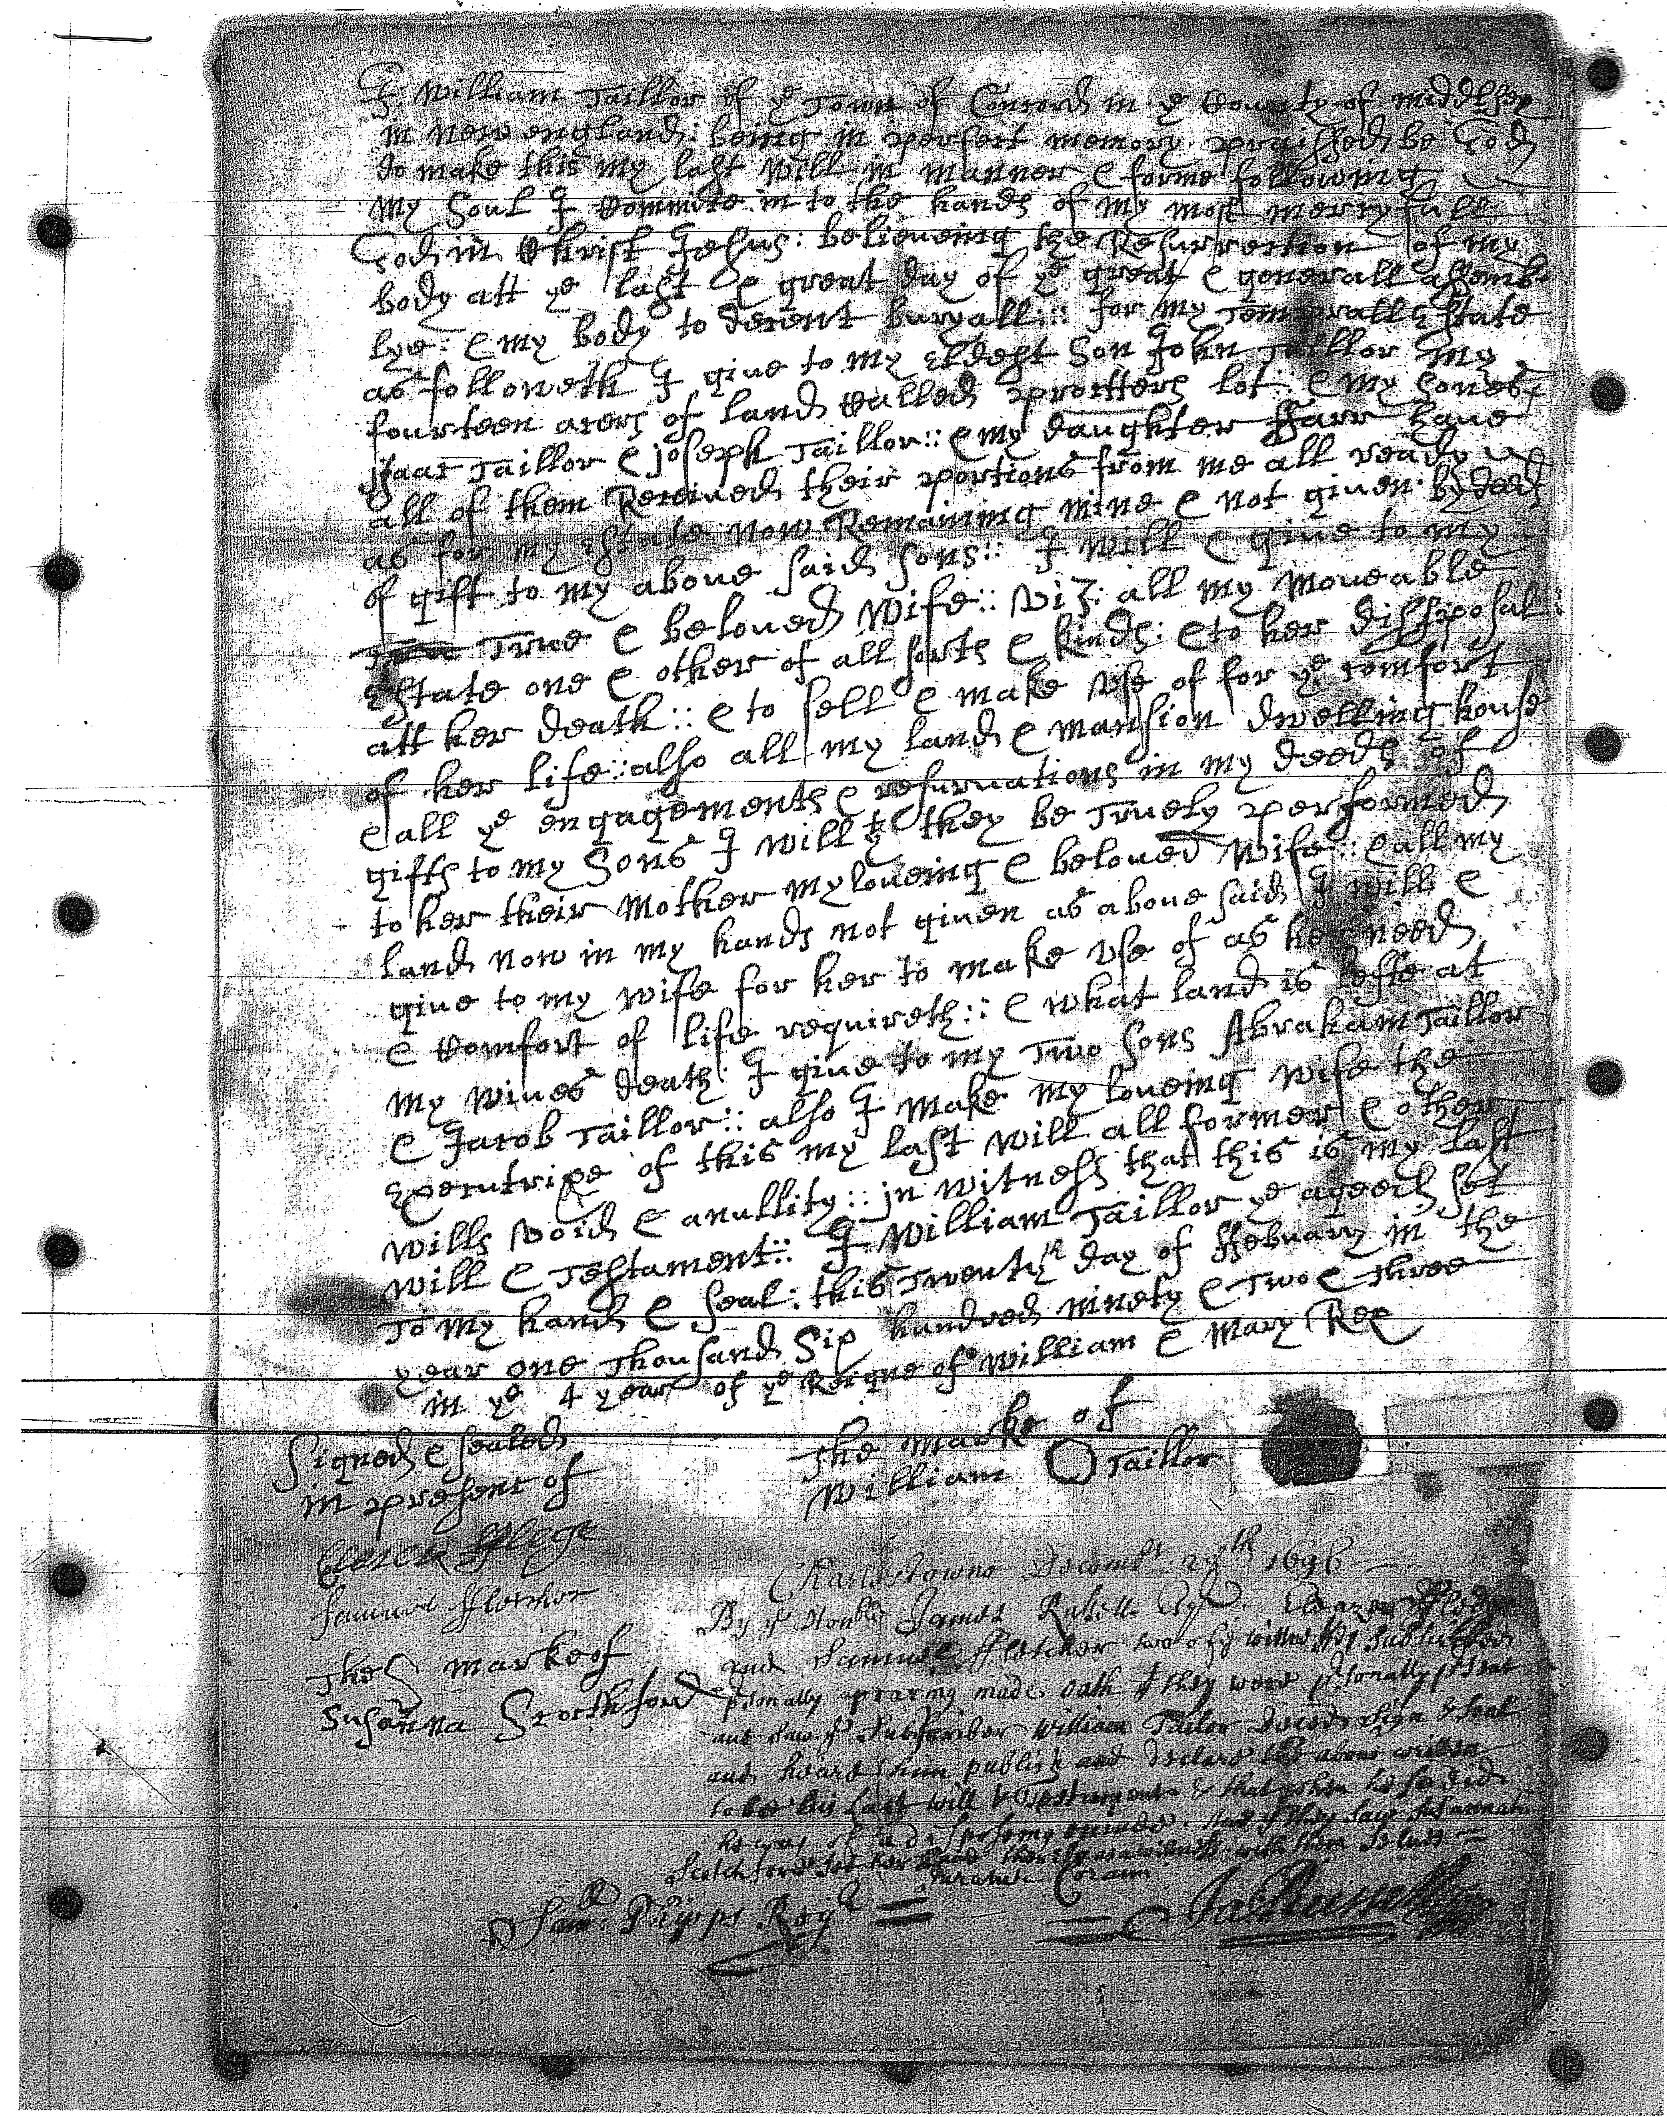 I William Taillor of ye Town of Concord in ye County of Middlesex
in new england: being in perfect memory praissed be God
do make this my last Will in manner & forme following
My Soul I Committe in to the hands of my most mercyfull
God in Christ Jesus: believeing the Resurrection of my
body att ye last & great day of ye great & generall assemb-
lye: & my body to decent buryall:: for my Temporall Estate
as followeth I give to my Eldest Son John Taillor my
fourteen acers of land Called procters lot: & my sones
Isaac Taillor & Joseph Taillor:: & my daughter ffarr have
all of them Received their portions from me all ready
as for my Estate now Remaining mine & not given by deed
of gift to my above said sons:: I will & give to my
True & beloved Wife:: Viz: all my Moveable
Estate one & other of all sorts & kinds: & to her dissposal:
att her death:: & to sell & make use of for ye comfort
of her life:: also all my land & mansion dwelling house
& all ye engagements & resurvations in my deeds of
gifts to my Sons I will yt they be Truely performed
to her their Mother my loveing & beloved Wife:: & all my
land now in my hands not given as above said I will &
give to my wife for her to make use of as her need
& Comfort of life requireth:: & what land is lefte at
my wives death: I give to my Two sons Abraham Taillor
& Jacob Taillor:: also I make my loveing wife the
Executrixe of this my last will all former & other
wills Void & anullity:: in witness that this is my last
will & Testament:: I William Taillor ye ageed set
To my hand & seal: this Twentyth day of ffebuary in the
year one Thousand Six hundred ninety & Two & Three
in ye 4 year of ye Reigne of William & Mary Rex
Signed & sealed
in presenc of
The marke of
William O Taillor
Samuel ffletcher
The marke of
Susanna Scotchford
Charlstowne Decembr 1696
By ye Honble James Russell Esqr Eleazer
and Samuel ffletcher two of ye witnesses Subscribed
psonally apearing made oath yt they were psonally psent
and saw ye Subscriber William Tailor Seal
and heard him publish and Declare the above written
to bee his Last will & Testament & that when he so did
he was of a disposeing minde. And yt they saw Susannah
Scotchford set her with them
Jurand Coram
Sam: Phipps Regr
Ja Russell